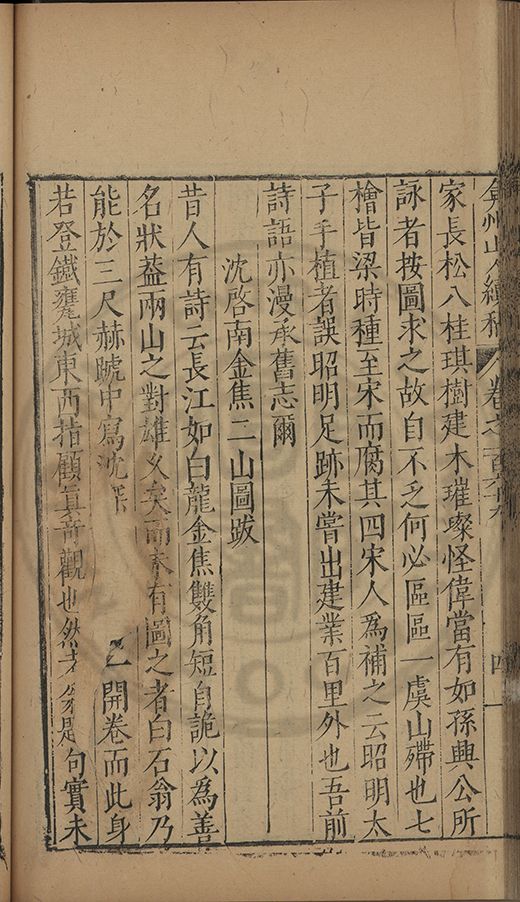 弇州山人續稿 卷之一百六十八 四
家長松八桂琪樹建木璀璨怪偉當有如孫興公所
詠者按圖求之故自不乏何必區區一虞山殢也七
檜皆梁時種至宋而腐其四宋人為補之云昭明太
子手植者誤昭明足跡未嘗出建業百里外也吾前
詩語亦漫承舊志爾
沈啓南金焦二山圖跋
昔人有詩云長江如白龍金焦雙角短自詭以為善
名狀蓋兩山之對雄久矣而未有圖之者白石翁乃
能於三尺赫蹏中寫沈 乙開卷而此身
若登鐵甕城東西指顧真奇觀也然 是句實未